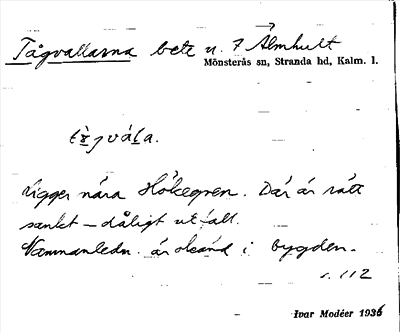 Tågvallarna bete u. 7 Älmhult
Mönsterås sn, Stranda hd, Kalm. l.
Ligger nära Hökegren. Där är rätt
sankt – dåligt utfall.
Namnanledn. är okänd i bygden.
s. 112
Ivar Modéer 1936